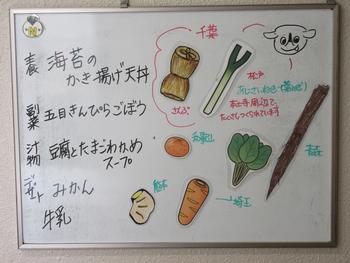 主食 海苔の
かき揚げ天丼
副菜 五目きんぴらごぼう
汁物 豆腐とたまごわかめ
スープ
デザート みかん
牛乳
千葉
松戸
あじさいねぎ
たくさんつくられています
和歌山
青森
埼玉